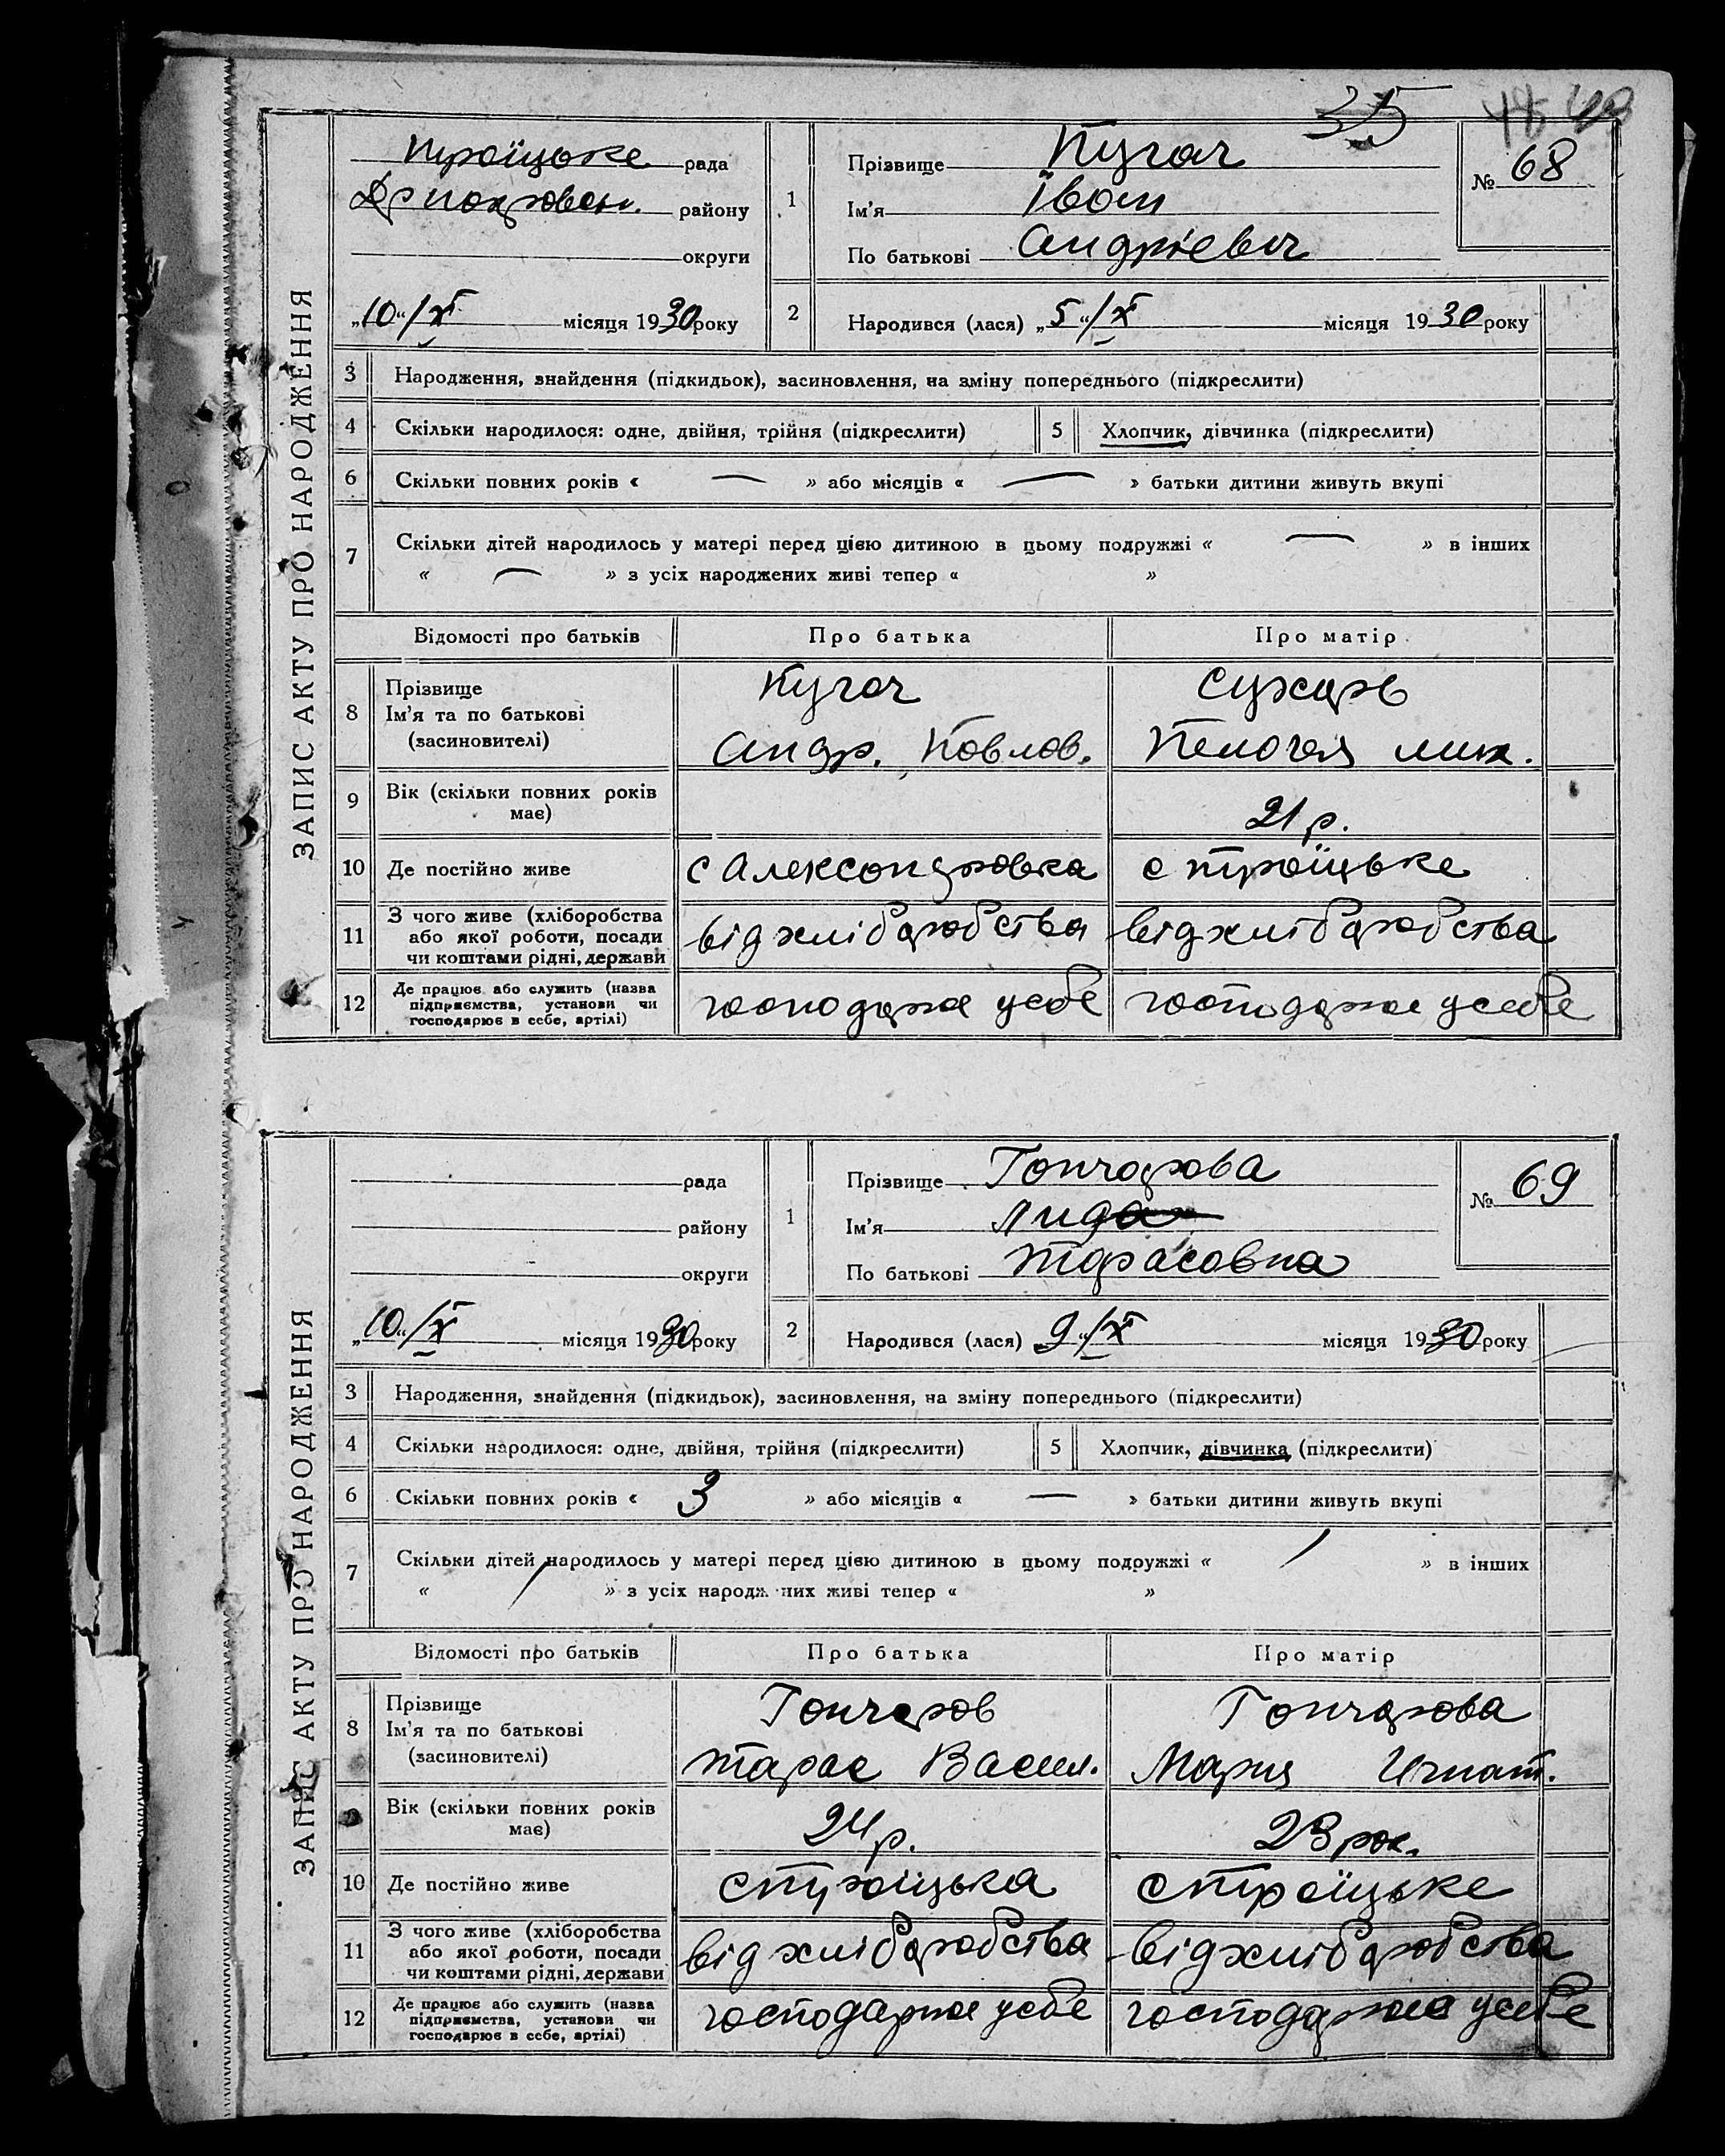 35
48
ЗАПИС АКТУ ПРО НАРОДЖЕННЯ
Троїцьке рада
району
округи
„10“/X місяця 1930 року
1
Прізвище Пугач
Ім'я Іван
По батькові Андрієвич
№ 68
2
Народився (лася) „5“/X місяця 1930 року
3 Народження, знайдення (підкидьок), засиновлення, на зміну попереднього (підкреслити)
4 Скільки народилося: одне, двійня, трійня (підкреслити) 5 Хлопчик, дівчинка (підкреслити)
6 Скільки повних років « — » або місяців « — » батьки дитини живуть вкупі
7 Скільки дітей народилось у матері перед цією дитиною в цьому подружжі « — » в інших
« — » з усіх народжених живі тепер « »
Відомості про батьків Про батька Про матір
8 Прізвище
Ім'я та по батькові
(засиновителі)
Пугач
Андр. Павлов.
Сухарь
Пелагея Мик.
9 Вік (скільки повних років
має)
21 р.
10 Де постійно живе с Александровка с Троїцьке
11 З чого живе (хліборобства
або якої роботи, посади
чи коштами рідні, держави
від хліборобства від хліборобства
12 Де працює або служить (назва
підприємства, установи чи
господарює в себе, артілі)
господарює у себе господарює у себе
ЗАПИС АКТУ ПРО НАРОДЖЕННЯ
рада
району
округи
„10“/X місяця 1930 року
1
Прізвище Гончарова
Ім'я Лида
По батькові Тарасовна
№ 69
2
Народився (лася) 9“/X місяця 1930 року
3 Народження, знайдення (підкидьок), засиновлення, на зміну попереднього (підкреслити)
4 Скільки народилося: одне, двійня, трійня (підкреслити) 5 Хлопчик, дівчинка (підкреслити)
6 Скільки повних років « 3 » або місяців « — » батьки дитини живуть вкупі
7 Скільки дітей народилось у матері перед цією дитиною в цьому подружжі « / » в інших
« / » з усіх народжених живі тепер « »
Відомості про батьків Про батька Про матір
8 Прізвище
Ім'я та по батькові
(засиновителі)
Гончаров
Тарас Васил.
Гончарова
Мария Игнат.
9 Вік (скільки повних років
має)
24 р. 23 рок.
10 Де постійно живе с Троїцька с Троїцьке
11 З чого живе (хліборобства
або якої роботи, посади
чи коштами рідні, держави
від хліборобства від хліборобства
12 Де працює або служить (назва
підприємства, установи чи
господарює в себе, артілі)
господарює у себе господарює у себе